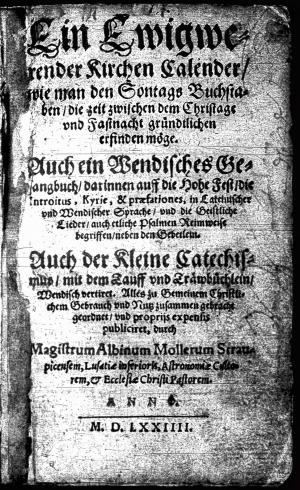 Ein Ewigwe-
render Kirchen Calender/
wie man den Sontags Buchsta-
ben/die zeit zwischen dem Christage
vnd Fasinacht gründtlichen
erfinden möge.
Auch ein Wendisches Ge-
sangbuch/darinnen auff die Hohe Fest/die
Introitus, Kyrie, & præfationes, in Lateinischer
vnd Wendischer Sprache/ vnd die Geistliche
Lieder/auch etliche Psalmen Reimweise
begriffen/neben den Gebetlein.
Auch der Kleine Catechis-
mus/ mit dem Tauff vnd Trawbüchlein/
Wendisch vertiret. Alles zu Gemeinem Christli-
chem Gebrauch vnd Nutz zusammen gebracht
geordnet/ vnd proprijs expensis
publiciret, durch
Magistrum Albinum Mollerum Strau-
picensem, Lusatiæ inferioris, Astronomiæ Culto-
rem, & Ecclesiæ Christi Pastorem.
ANNO.
M. D. LXXIIII.